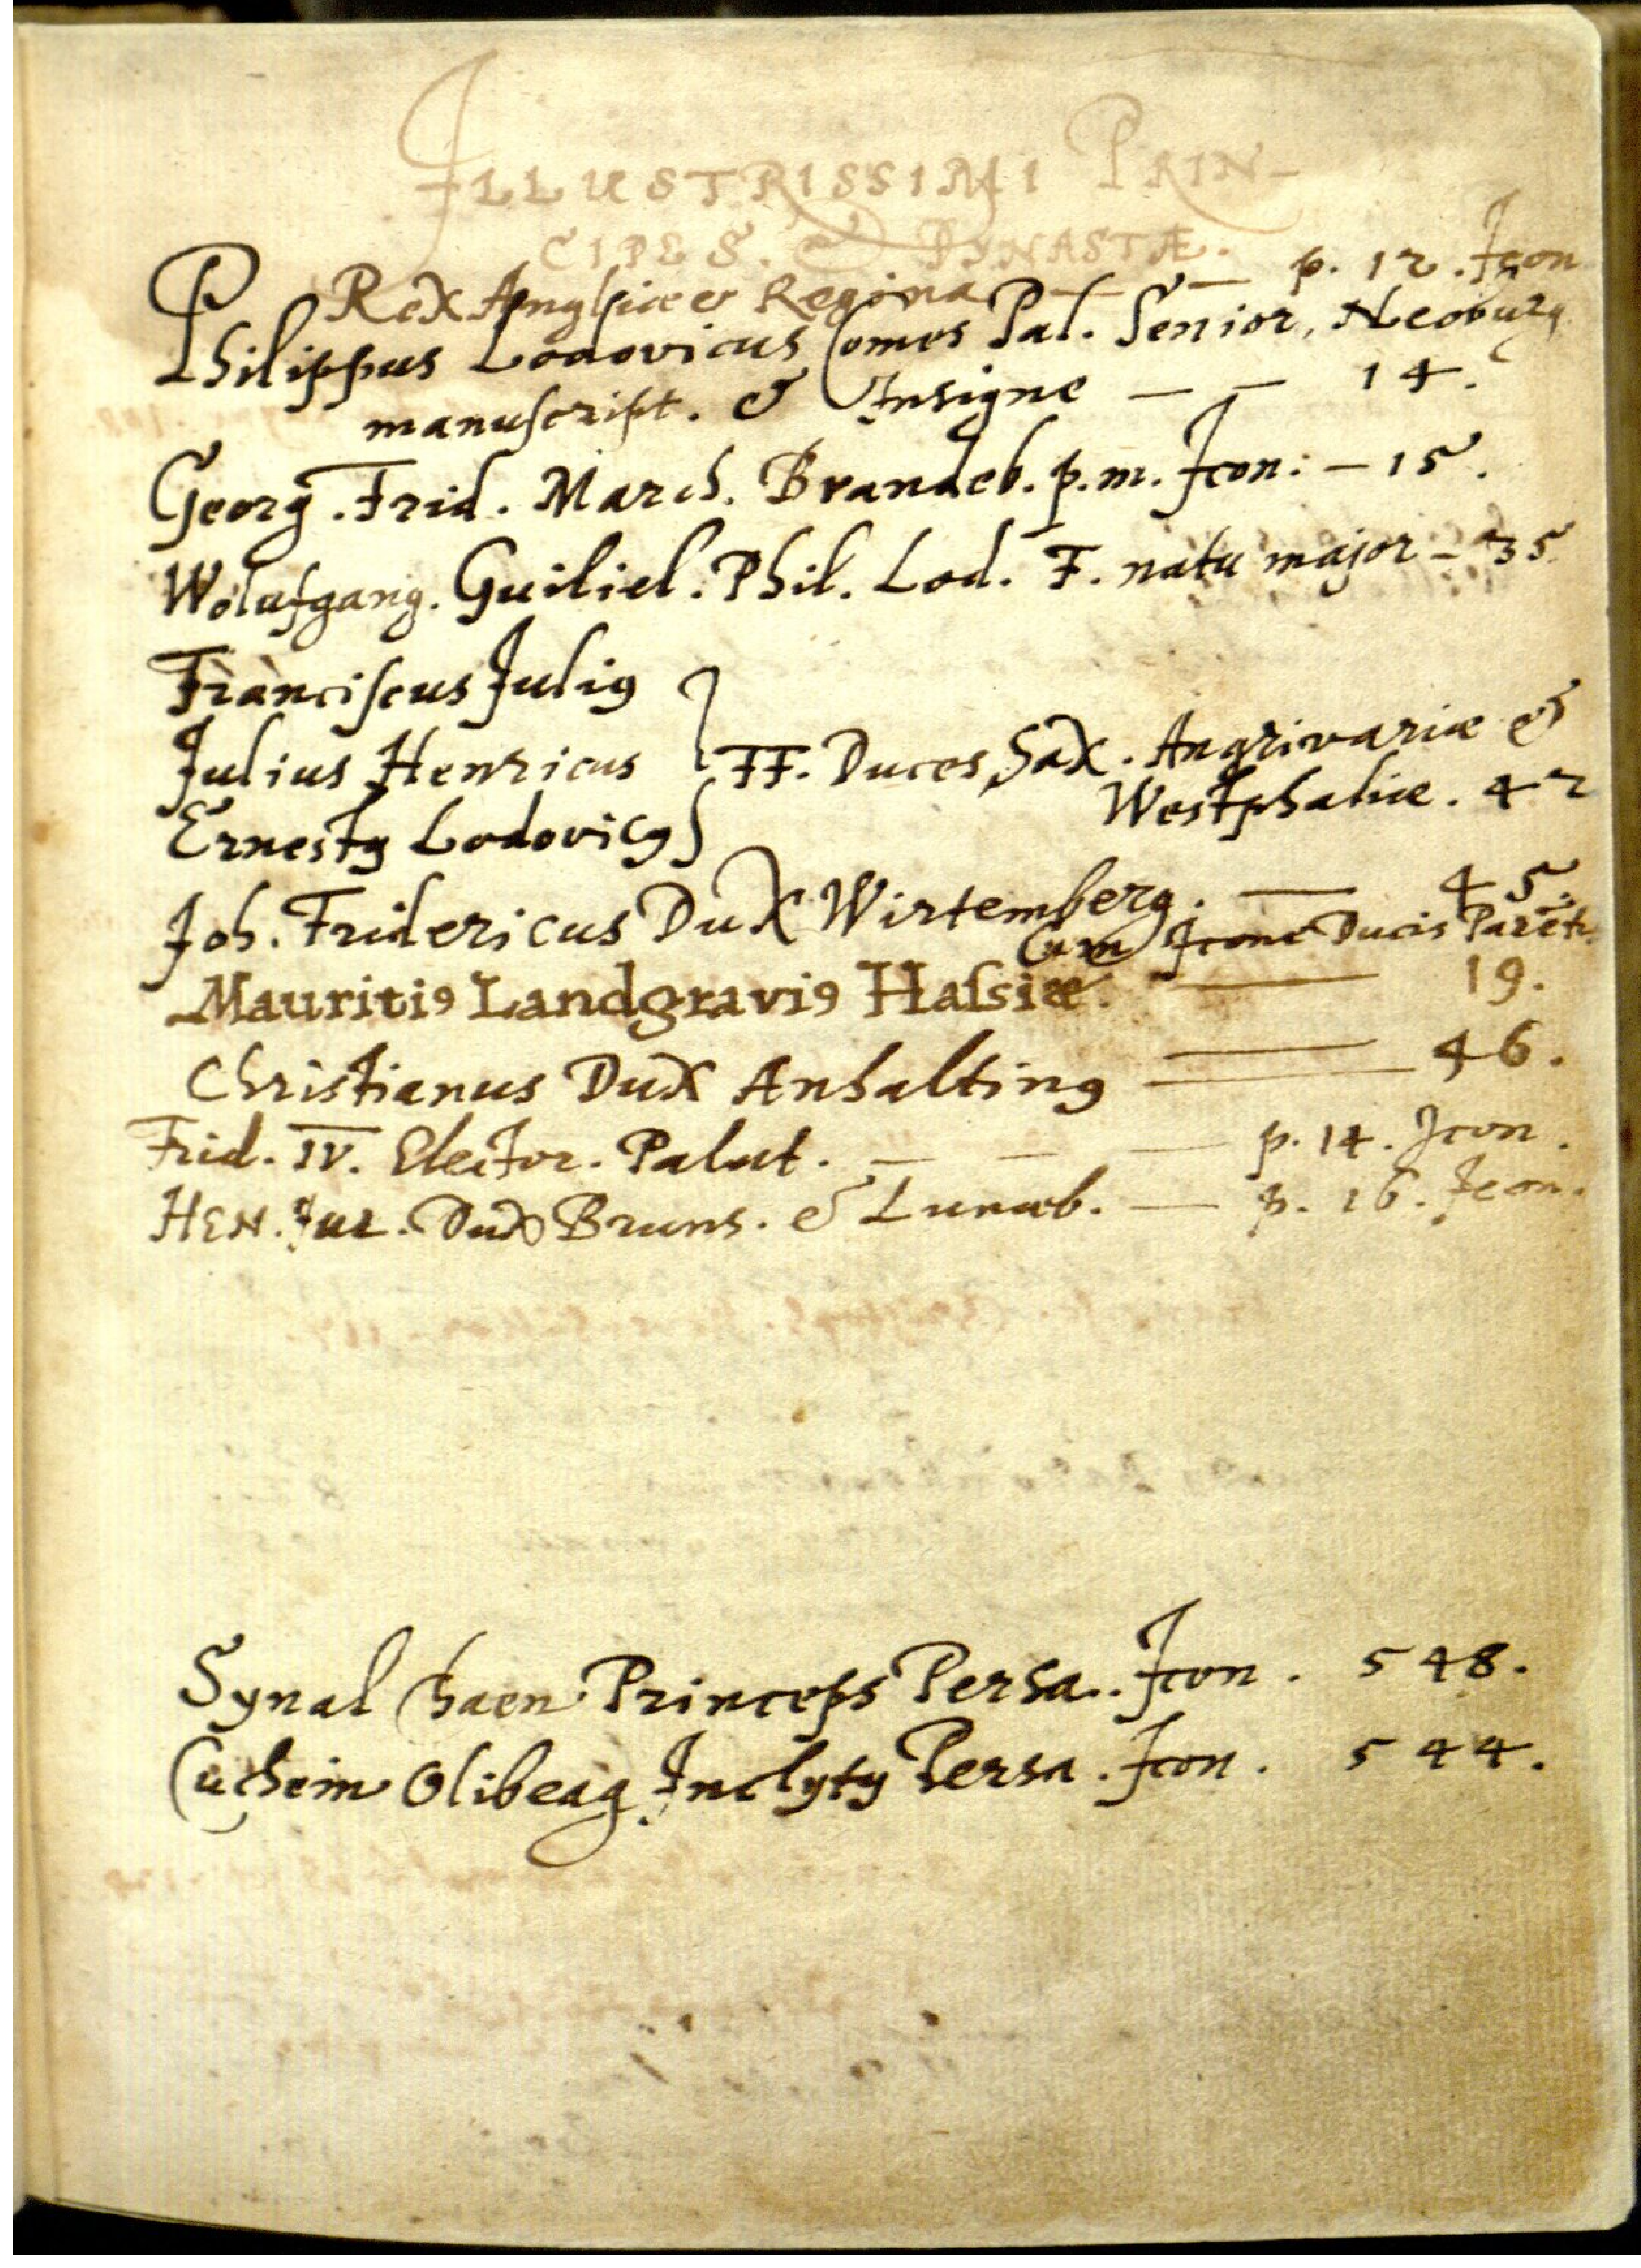 ILLUSTRISSIMI PRIN-
CIPES. & DYNASTÆ.
Rex Angliæ & Regina — — p. 12. Icon
Philippus Lodovicus Comes Pal. Senior, Neoburg
manuſcript. & Insigne — — 14.
Georg. Frid. March. Brandeb. p. m. Icon: — 15.
Wolufgang. Guiliel. Phil. Lod. F. natu major — 35
Franciſcus Juliꝯ
Julius Henricus } FF. Duces Sax. Angrivariæ &
Westphaliæ. 42
Ernestꝯ Lodovicꝯ
Joh. Fridericus Dux Wirtemberg. — 45.
Cum Icone Ducis Parēt.
Mauritiꝯ Landgraviꝯ Haſsiæ. — 19.
Christianus Dux Anhaltinꝯ — 46.
Frid. IV. Elector. Palat. — — — p. 14. Icon.
HEN. Jul. Dux Bruns. & Lunæb. — p. 16. Icon.
Synal Chaen Princeps Persa. Icon. 548.
Cuchein Olibeag Inclytꝯ Persa. Icon. 544.